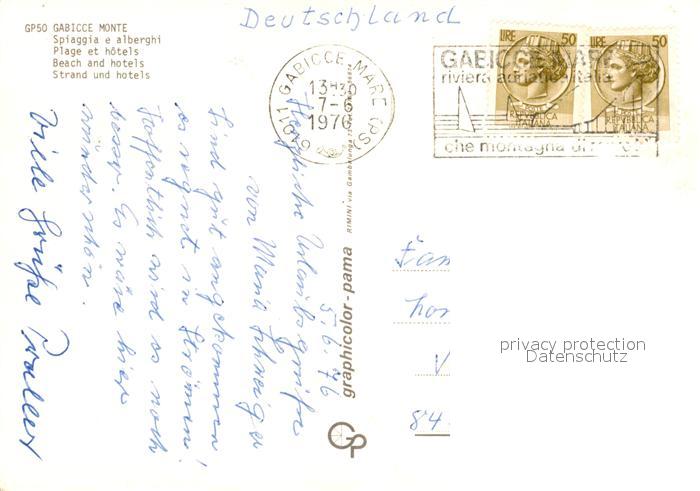 Deutschland
GP50 GABICCE MONTE
Spiaggia e alberghi
Plage et hôtels
Beach and hotels
Strand und hotels
61011 GABICCE-MARE (PS)
13-30
7-6
1976
LIRE 50
LIRE 50
REPUBBLICA ITALIANA
REPUBBLICA ITALIANA
GABICCE MARE
riviera adriatica italia
che montagna di
5.6.76
Herzliche Urlaubsgrüße
von Maria
Sind gut angekommen
es regnet in Strömen!
Hoffentlich wird es noch
besser. Es wäre hier
wunderschön.
Viele Grüße
graphicolor - pama
RIMINI via Gambalunga
GP
Fam
V
84
privacy protection
Datenschutz